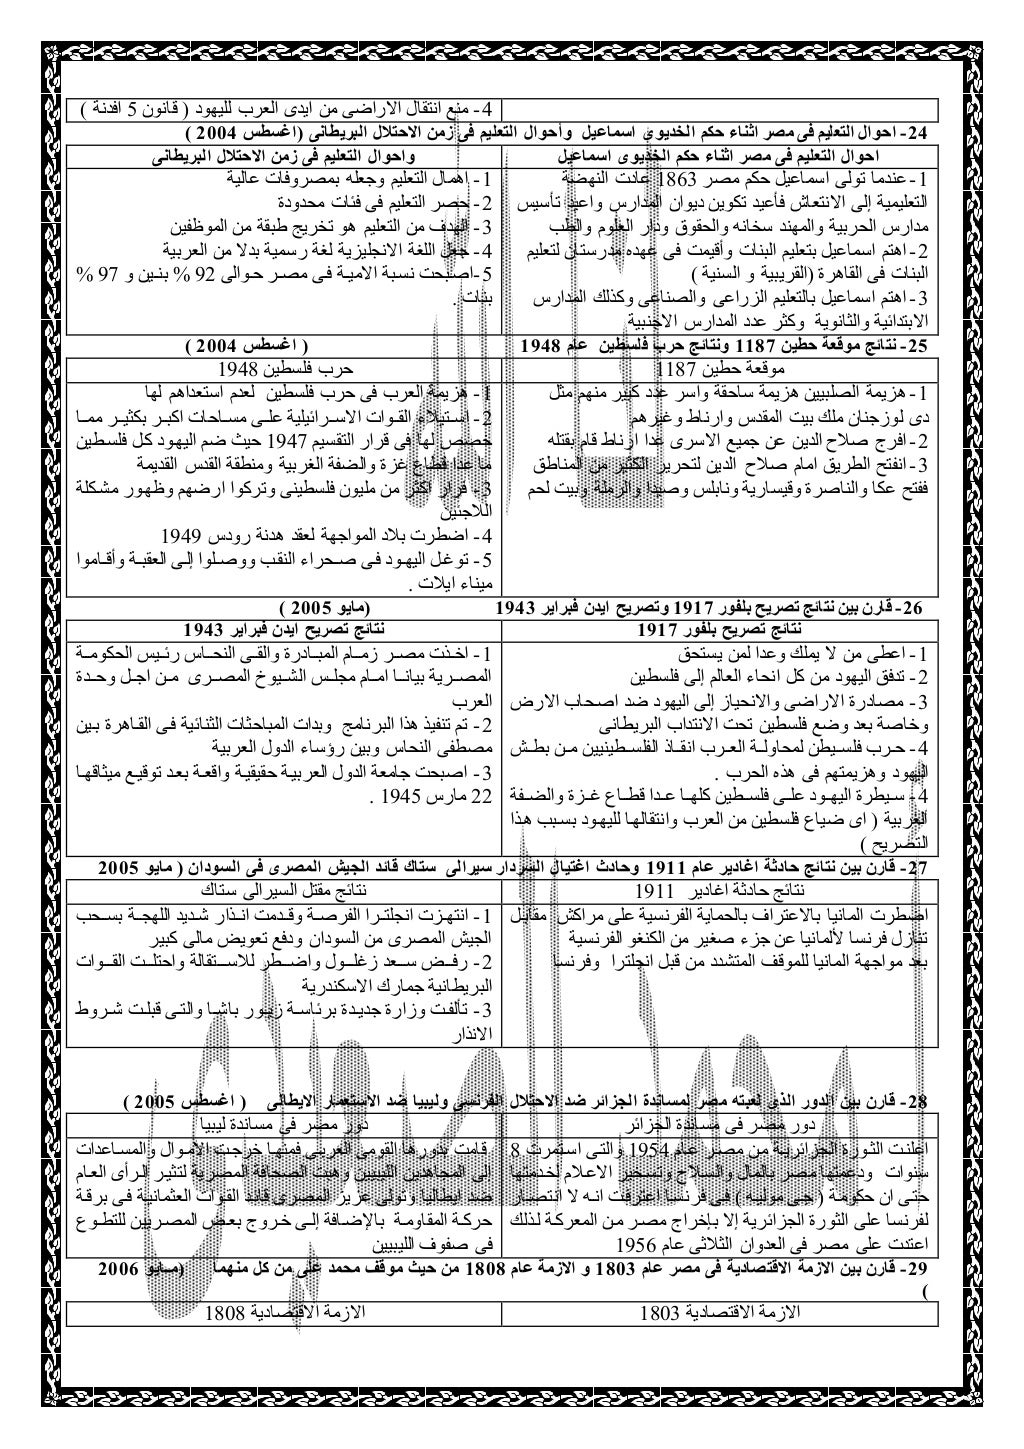 4- منع انتقال الاراضى من ايدى العرب لليهود ( قانون 5 افدنة )
24- احوال التعليم فى مصر اثناء حكم الخديوى اسماعيل وأحوال التعليم فى زمن الاحتلال البريطانى (اغسطس 2004 )
احوال التعليم فى مصر اثناء حكم الخديوى اسماعيل
1- عندما تولى اسماعيل حكم مصر 1863 عادت النهضة
التعليمية إلى الانتعاش فأعيد تكوين ديوان المدارس واعيد تأسيس
مدارس الحربية والمهند سخانه والحقوق ودار العلوم والطب
2- اهتم اسماعيل بتعليم البنات وأقيمت فى عهده مدرستان لتعليم
البنات فى القاهرة (القريبية و السنية )
3- اهتم اسماعيل بالتعليم الزراعى والصناعى وكذلك المدارس
الابتدائية والثانوية وكثر عدد المدارس الاجنبية
واحوال التعليم فى زمن الاحتلال البريطانى
1- اهمال التعليم وجعله بمصروفات عالية
2- حصر التعليم فى فئات محدودة
3- الهدف من التعليم هو تخريج طبقة من الموظفين
4- جعل اللغة الانجليزية لغة رسمية بدلا من العربية
5-اصبحت نسبة الامية فى مصر حوالى 92 % بنين و 97 %
بنات .
25- نتائج موقعة حطين 1187 ونتائج حرب فلسطين عام 1948 ( اغسطس 2004 )
موقعة حطين 1187
1- هزيمة الصليبين هزيمة ساحقة واسر عدد كبير منهم مثل
دى لوزجنان ملك بيت المقدس وارناط وغيرهم
2- افرج صلاح الدين عن جميع الاسرى عدا ارناط قام بقتله
3- انفتح الطريق امام صلاح الدين لتحرير الكثير من المناطق
ففتح عكا والناصرة وقيسارية ونابلس وصيدا والرملة وبيت لحم
حرب فلسطين 1948
1- هزيمة العرب فى حرب فلسطين لعدم استعداهم لها
2- استيلاء القوات الاسرائيلية على مساحات اكبر بكثير مما
خصص لها فى قرار التقسيم 1947 حيث ضم اليهود كل فلسطين
ما عدا قطاع غزة والضفة الغربية ومنطقة القدس القديمة
3- فرار اكثر من مليون فلسطينى وتركوا ارضهم وظهور مشكلة
اللاجئين
4- اضطرت بلاد المواجهة لعقد هدنة رودس 1949
5- توغل اليهود فى صحراء النقب ووصلوا إلى العقبة وأقاموا
ميناء ايلات .
26- قارن بين نتائج تصريح بلفور 1917 وتصريح ايدن فبراير 1943 (مايو 2005 )
نتائج تصريح بلفور 1917
1- اعطى من لا يملك وعدا لمن يستحق
2- تدفق اليهود من كل انحاء العالم إلى فلسطين
3- مصادرة الاراضى والانحياز إلى اليهود ضد اصحاب الارض
وخاصة بعد وضع فلسطين تحت الانتداب البريطانى
4- حرب فلسيطن لمحاولة العرب انقاذ الفلسطينيين من بطش
اليهود وهزيمتهم فى هذه الحرب .
4- سيطرة اليهود على فلسطين كلها عدا قطاع غزة والضفة
الغربية ( اى ضياع فلسطين من العرب وانتقالها لليهود بسبب هذا
التصريح )
نتائج تصريح ايدن فبراير 1943
1- اخذت مصر زمام المبادرة والقى النحاس رئيس الحكومة
المصرية بيانا امام مجلس الشيوخ المصرى من اجل وحدة
العرب
2- تم تنفيذ هذا البرنامج وبدات المباحثات الثنائية فى القاهرة بين
مصطفى النحاس وبين رؤساء الدول العربية
3- اصبحت جامعة الدول العربية حقيقية واقعة بعد توقيع ميثاقها
22 مارس 1945 .
27- قارن بين نتائج حادثة اغادير عام 1911 وحادث اغتيال السردار سيرالى ستاك قائد الجيش المصرى فى السودان ( مايو 2005
نتائج حادثة اغادير 1911
اضطرت المانيا بالاعتراف بالحماية الفرنسية على مراكش مقابل
تنازل فرنسا لألمانيا عن جزء صغير من الكنغو الفرنسية
بعد مواجهة المانيا للموقف المتشدد من قبل انجلترا وفرنسا
نتائج مقتل السيرالى ستاك
1- انتهزت انجلترا الفرصة وقدمت انذار شديد اللهجة بسحب
الجيش المصرى من السودان ودفع تعويض مالى كبير
2- رفض سعد زغلول واضطر للاستقالة واحتلت القوات
البريطانية جمارك الاسكندرية
3- تألفت وزارة جديدة برئاسة زيور باشا والتى قبلت شروط
الانذار
28- قارن بين الدور الذى لعبته مصر لمساندة الجزائر ضد الاحتلال الفرنسى وليبيا ضد الاستعمار الايطالى ( اغسطس 2005 )
دور مصر فى مساندة الجزائر
اعلنت الثورة الجزائرية من مصر عام 1954 والتى استمرت 8
سنوات ودعمتها مصر بالمال والسلاح وتسخير الاعلام لخدمتها
حتى ان حكومة ( جى موليه ) فى فرنسا اعترفت انه لا انتصار
لفرنسا على الثورة الجزائرية إلا بإخراج مصر من المعركة لذلك
اعتدت على مصر فى العدوان الثلاثى عام 1956
دور مصر فى مساندة ليبيا
قامت بدورها القومى العربى فمنها خرجت الاموال والمساعدات
إلى المجاهدين الليبيين وهبت الصحافة المصرية لتثير الرأى العام
ضد ايطاليا وتولى عزيز المصرى قائد القوات العثمانية فى برقة
حركة المقاومة بالإضافة إلى خروج بعض المصريين للتطوع
فى صفوف الليبيين
29- قارن بين الازمة الاقتصادية فى مصر عام 1803 و الازمة عام 1808 من حيث موقف محمد على من كل منهما (مايو 2006
)
الازمة الاقتصادية 1803
الازمة الاقتصادية 1808